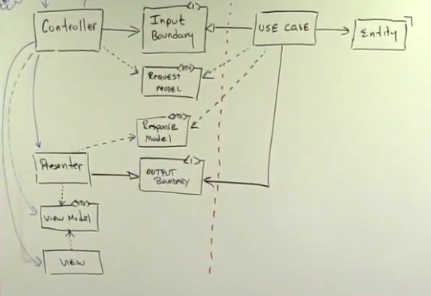 Controller
<I>
Input
Boundary
USE CASE
Entity
<DS>
REQUEST
MODEL
<DS>
Response
Model
Presenter
<I>
OUTPUT
BOUNDARY
<DS>
VIEW MODEL
VIEW